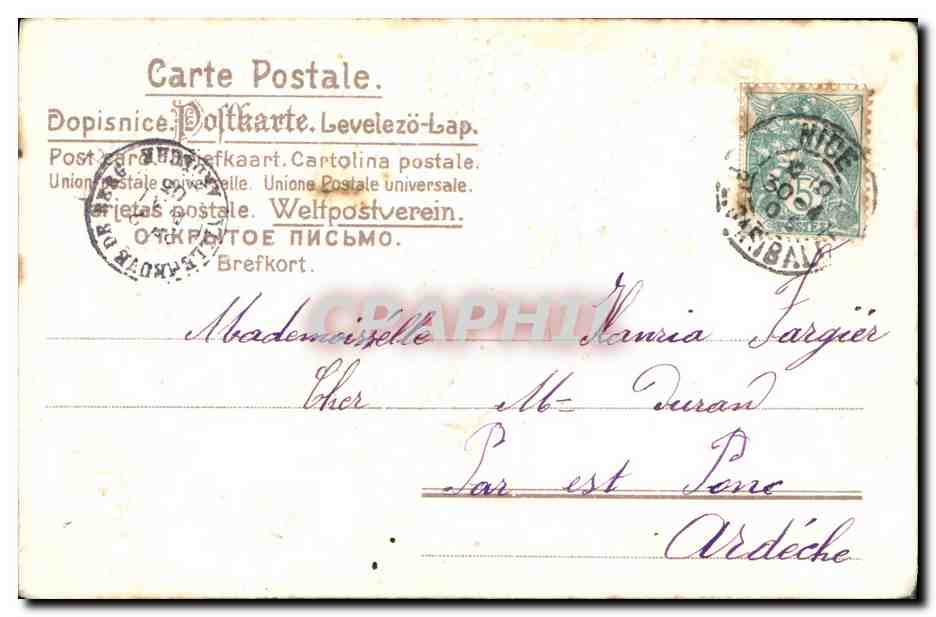 Carte Postale.
Dopisnice. Postkarte. Levelezö-Lap.
Post card. Briefkaart. Cartolina postale.
Union postale universelle. Unione Postale universale.
Tarjetas postale. Weltpostverein.
ОТКРЫТОЕ ПИСЬМО.
Brefkort.
NICE
GARIBALDI
5
ARDÈCHE
VILLENEUVE DE BERG
CPAPHIL
Mademoisélle Hanria Fargiér
Cher Me Durand
Par est Ponc
Ardéche